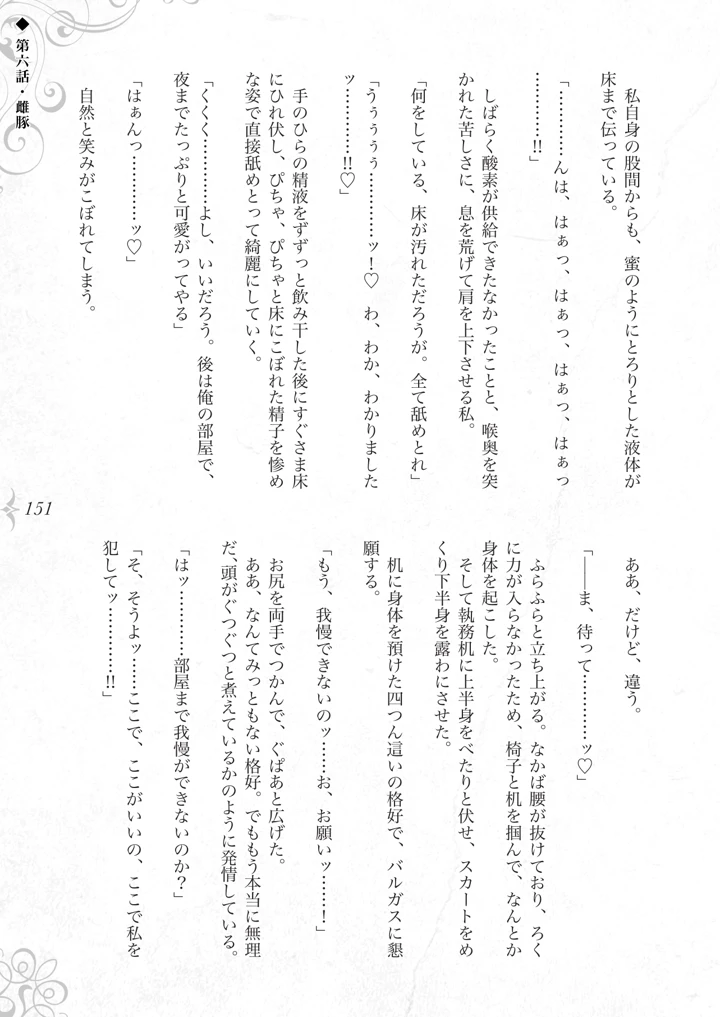 ◆ 第六話・雌豚
私自身の股間からも、蜜のようにとろりとした液体が
床まで伝っている。
「…………んは、はぁっ、はぁっ、はぁっ、はぁっ
…………!!」
しばらく酸素が供給できたなかったことと、喉奥を突
かれた苦しさに、息を荒げて肩を上下させる私。
「何をしている、床が汚れただろうが。全て舐めとれ」
「うぅぅぅぅ…………ッ!♡ わ、わか、わかりました
ッ…………!!♡」
手のひらの精液をずずっと飲み干した後にすぐさま床
にひれ伏し、ぴちゃ、ぴちゃと床にこぼれた精子を惨め
な姿で直接舐めとって綺麗にしていく。
「くくく…………よし、いいだろう。後は俺の部屋で、
夜までたっぷりと可愛がってやる」
「はぁんっ…………ッ♡」
自然と笑みがこぼれてしまう。
ああ、だけど、違う。
「――ま、待って…………ッ♡」
ふらふらと立ち上がる。なかば腰が抜けており、ろく
に力が入らなかったため、椅子と机を掴んで、なんとか
身体を起こした。
そして執務机に上半身をべたりと伏せ、スカートをめ
くり下半身を露わにさせた。
机に身体を預けた四つん這いの格好で、バルガスに懇
願する。
「もう、我慢できないのッ……お、お願いッ……!」
お尻を両手でつかんで、ぐぱあと広げた。
ああ、なんてみっともない格好。でももう本当に無理
だ、頭がぐつぐつと煮えているかのように発情している。
「はッ…………部屋まで我慢ができないのか?」
「そ、そうよッ……ここで、ここがいいの、ここで私を
犯してッ…………!!」
151